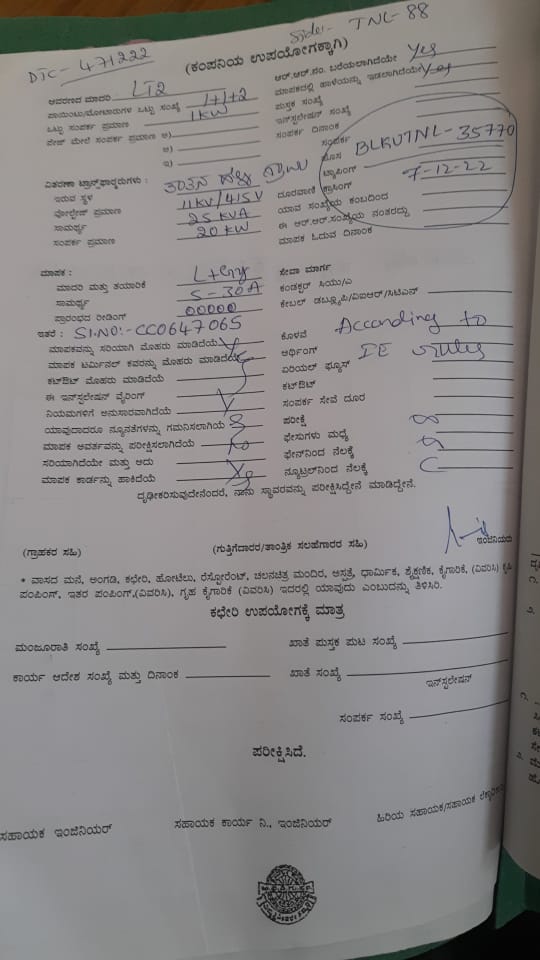 Side:- TNL-88
DTC- 471222
(ಕಂಪನಿಯ ಉಪಯೋಗಕ್ಕಾಗಿ)
ಆವರಣದ ಮಾದರಿ LT2
ಪಾಯಿಂಟು/ಮೋಟಾರುಗಳ ಒಟ್ಟು ಸಂಖ್ಯೆ 1+1+2
ಒಟ್ಟು ಸಂಪರ್ಕ ಪ್ರಮಾಣ 1KW
ಮೇಲೆ ಸಂಪರ್ಕ ಪ್ರಮಾಣ ಅ)
ಆ)
ಇ)
ವಿತರಣಾ ಟ್ರಾನ್ಸ್‌ಫಾರ್ಮರುಗಳು :
ಇರುವ ಸ್ಥಳ
ವೋಲ್ಟೇಜ್ ಪ್ರಮಾಣ 11KV/415V
ಸಾಮರ್ಥ್ಯ 25 KVA
ಸಂಪರ್ಕ ಪ್ರಮಾಣ 20 KW
ಆರ್.ಆರ್.ನಂ. ಬರೆಯಲಾಗಿದೆಯೇ Yes
ಮಾಪಕದಲ್ಲಿ ಹಾಳೆಯನ್ನು ಇಡಲಾಗಿದೆಯೇ Yes
ಪುಸ್ತಕ ಸಂಖ್ಯೆ
ಇನ್‌ಸ್ಟಲೇಷನ್ ಸಂಖ್ಯೆ
ಸಂಪರ್ಕ ದಿನಾಂಕ
ಸಂಪರ್ಕ BLKUTNL-35770
ಹೊಸ
ಟ್ಯಾಪಿಂಗ್ 7-12-22
ದೂರವಾಣಿ ಕ್ರಾಸಿಂಗ್
ಯಾವ ಸಂಖ್ಯೆಯ ಕಂಬದಿಂದ
ಈ ಆರ್.ಆರ್.ಸಂಖ್ಯೆಯ ನಂತರದ್ದು
ಮಾಪಕ ಓದುವ ದಿನಾಂಕ
ಮಾಪಕ :
ಮಾದರಿ ಮತ್ತು ತಯಾರಿಕೆ L+Gny
ಸಾಮರ್ಥ್ಯ 5-30A
ಪ್ರಾರಂಭದ ರೀಡಿಂಗ್ 00000
ಇತರೆ : SI.NO:- CC0647065
ಮಾಪಕವನ್ನು ಸರಿಯಾಗಿ ಮೊಹರು ಮಾಡಿದೆಯೆ
ಮಾಪಕ ಟರ್ಮಿನಲ್ ಕವರನ್ನು ಮೊಹರು ಮಾಡಿದೆಯೆ
ಕಟ್‌ಔಟ್ ಮೊಹರು ಮಾಡಿದೆಯೆ
ಈ ಇನ್‌ಸ್ಟಲೇಷನ್ ವೈರಿಂಗ್
ನಿಯಮಗಳಿಗೆ ಅನುಸಾರವಾಗಿದೆಯೆ
ಯಾವುದಾದರೂ ನ್ಯೂನತೆಗಳನ್ನು ಗಮನಿಸಲಾಗಿಯೆ
ಮಾಪಕ ಅವರ್ತವನ್ನು ಪರೀಕ್ಷಿಸಲಾಗಿದೆಯೆ
ಸರಿಯಾಗಿದೆಯೇ ಮತ್ತು ಅದು
ಮಾಪಕ ಕಾರ್ಡನ್ನು ಹಾಕಿದೆಯೆ
ಸೇವಾ ಮಾರ್ಗ
ಕಂಡಕ್ಟರ್ ಸಿಯು/ಎ
ಕೇಬಲ್ ಡಬ್ಲ್ಯೂಪಿ/ವಿಐಆರ್/ಸಿಟಿಎಸ್
ಕೊಳವೆ According to
ಅರ್ಥಿಂಗ್ IE rules
ಏರಿಯಲ್ ಫ್ಯೂಸ್
ಕಟ್‌ಔಟ್
ಸಂಪರ್ಕ ಸೇವೆ ದೂರ
ಪರೀಕ್ಷೆ
ಫೇಸುಗಳು ಮಧ್ಯೆ
ಫೇಸ್‌ನಿಂದ ನೆಲಕ್ಕೆ
ನ್ಯೂಟ್ರಲ್‌ನಿಂದ ನೆಲಕ್ಕೆ
ದೃಢೀಕರಿಸುವುದೇನೆಂದರೆ, ನಾನು ಸ್ಥಾವರವನ್ನು ಪರೀಕ್ಷಿಸಿದ್ದೇನೆ ಮಾಡಿದ್ದೇನೆ.
(ಗ್ರಾಹಕರ ಸಹಿ) (ಗುತ್ತಿಗೆದಾರರ/ತಾಂತ್ರಿಕ ಸಲಹೆಗಾರರ ಸಹಿ) ಇಂಜಿನಿಯರು
* ವಾಸದ ಮನೆ, ಅಂಗಡಿ, ಕಛೇರಿ, ಹೋಟೆಲು, ರೆಸ್ಟೋರೆಂಟ್, ಚಲನಚಿತ್ರ ಮಂದಿರ, ಆಸ್ಪತ್ರೆ, ಧಾರ್ಮಿಕ, ಶೈಕ್ಷಣಿಕ, ಕೈಗಾರಿಕೆ, (ವಿವರಿಸಿ) ಕೃಷಿ
ಪಂಪಿಂಗ್, ಇತರ ಪಂಪಿಂಗ್,(ವಿವರಿಸಿ), ಗೃಹ ಕೈಗಾರಿಕೆ (ವಿವರಿಸಿ) ಇದರಲ್ಲಿ ಯಾವುದು ಎಂಬುದನ್ನು ತಿಳಿಸಿರಿ.
ಕಛೇರಿ ಉಪಯೋಗಕ್ಕೆ ಮಾತ್ರ
ಮಂಜೂರಾತಿ ಸಂಖ್ಯೆ ಖಾತೆ ಪುಸ್ತಕ ಪುಟ ಸಂಖ್ಯೆ
ಕಾರ್ಯ ಆದೇಶ ಸಂಖ್ಯೆ ಮತ್ತು ದಿನಾಂಕ ಖಾತೆ ಸಂಖ್ಯೆ
ಇನ್‌ಸ್ಟಲೇಷನ್
ಸಂಪರ್ಕ ಸಂಖ್ಯೆ
ಪರೀಕ್ಷಿಸಿದೆ.
ಸಹಾಯಕ ಇಂಜಿನಿಯರ್ ಸಹಾಯಕ ಕಾರ್ಯ ನಿ., ಇಂಜಿನಿಯರ್ ಹಿರಿಯ ಸಹಾಯಕ/ಸಹಾಯಕ